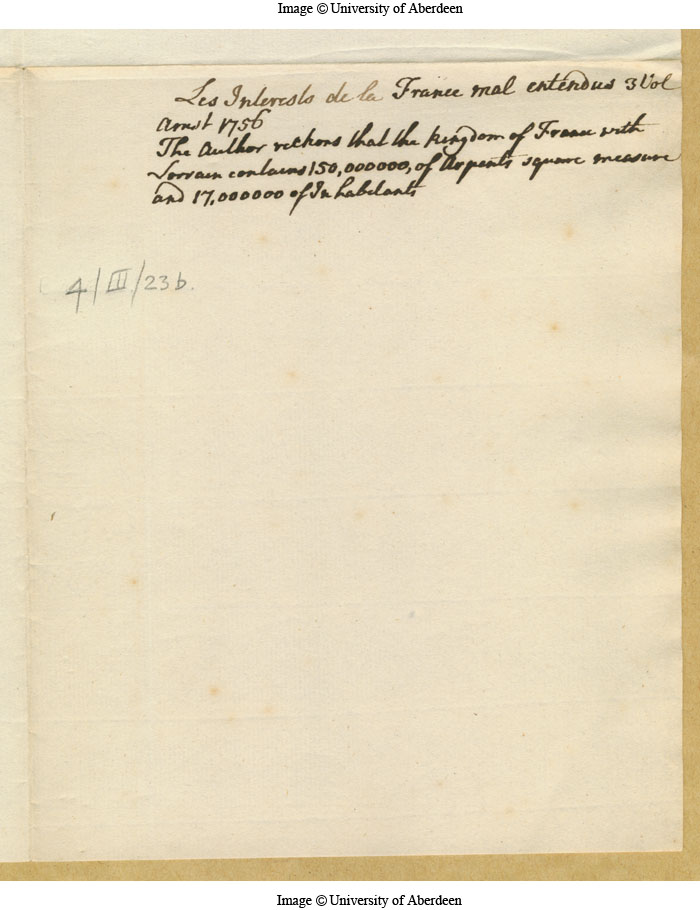 Image © University of Aberdeen
Les Interests de la France mal entendus 3 Vol
Amst 1756
The Author reckons that the kingdom of France with
Lorrain contains 150,000000, of Arpents square measure
and 17,000000 of Inhabitants
4/III/23b.
Image © University of Aberdeen